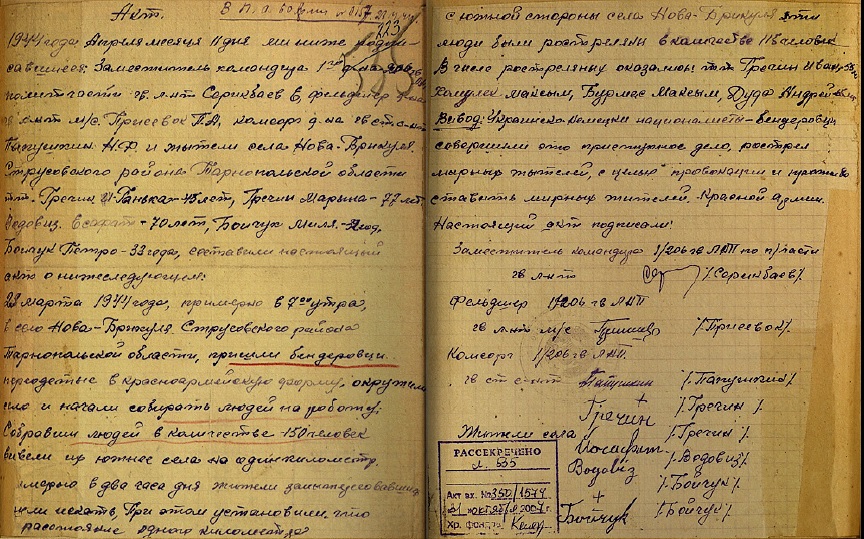 Акт.
В П.О. 60 арм
1944 года Апреля месяца 11 дня мы ниже подпи-
савшиеся: Заместитель командира 1го д-на 206 гв
политчасти гв. л-нт Серикбаев Е, фельдшер д-на
гв л-нт м/с. Присевок П.А, комсорг д-на гв ст с-нт
Папушкин Н.Ф и жители села Нова-Брикуля.
Струсовского района Тарнопольской области
т.т. Гречин И Панька-45 лет, Гречин Марына-77 лет
Водовиз. Восафат-70 лет, Бойчук Миля- год,
Бойчук Петро-33 года, составили настоящий
акт о нижеследующем:
28 марта 1944 года, примерно в 7оо утра,
в село Нова-Брикуля Струсовского района
Тарнопольской области, пришли бендеровци
переодетые в красноармейскую форму, окружили
село и начали собирать людей на работу.
Собравши людей в количестве 150 человек
вывели их южнее села на один километр.
имерно в два часа дня жители заинтересовавшись
шли искать, При этом установили, что
расстояние одного километра
с южной стороны села Нова-Брикуля эти
люди были ростреляны в количестве 115 человек
В числе ростреляных оказались: т.т Гречин Иван-55,
Максым, Бурмас Максым, Дуда Андрей
Вывод: Украинско-немецки националисты-бендеровци
совершили это приступное дело, рострел
мирных жытелей, с целью провокации и противо
ставить мирных жителей. Красной армии.
Настоящий акт подписали:
Заместитель командира 1/206 гв ЛАП по п/части
гв л-нт /Серикбаев/.
Фельдшер 1/206 гв ЛАП
гв л-нт м/с /Присевок/.
Комсорг 1/206 гв ЛАП.
гв ст с-нт Папушкин /Папушкин/.
+
Гречин /Гречин/.
Жители села /Гречин/.
Иосафат
Водовіз /Водовиз/.
+ /Бойчук/.
Бойчук /Бойчук/.
РАССЕКРЕЧЕНО
л. 535
Акт вх. № 350/1574
2007 г.
Хр. фонда